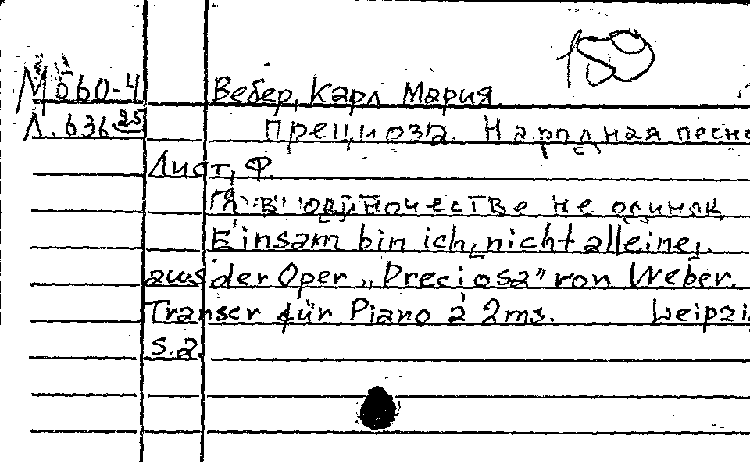 180
М 660-4
Вебер, Карл Мария
Л. 636 25
Прециоза. Народная песня
Лист, Ф.
Я в одиночестве не одинок
Einsam bin ich, nicht alleine,
aus der Oper „Preciosa" von Weber.
Transcr für Piano à 2ms. Leipzi
S.a.